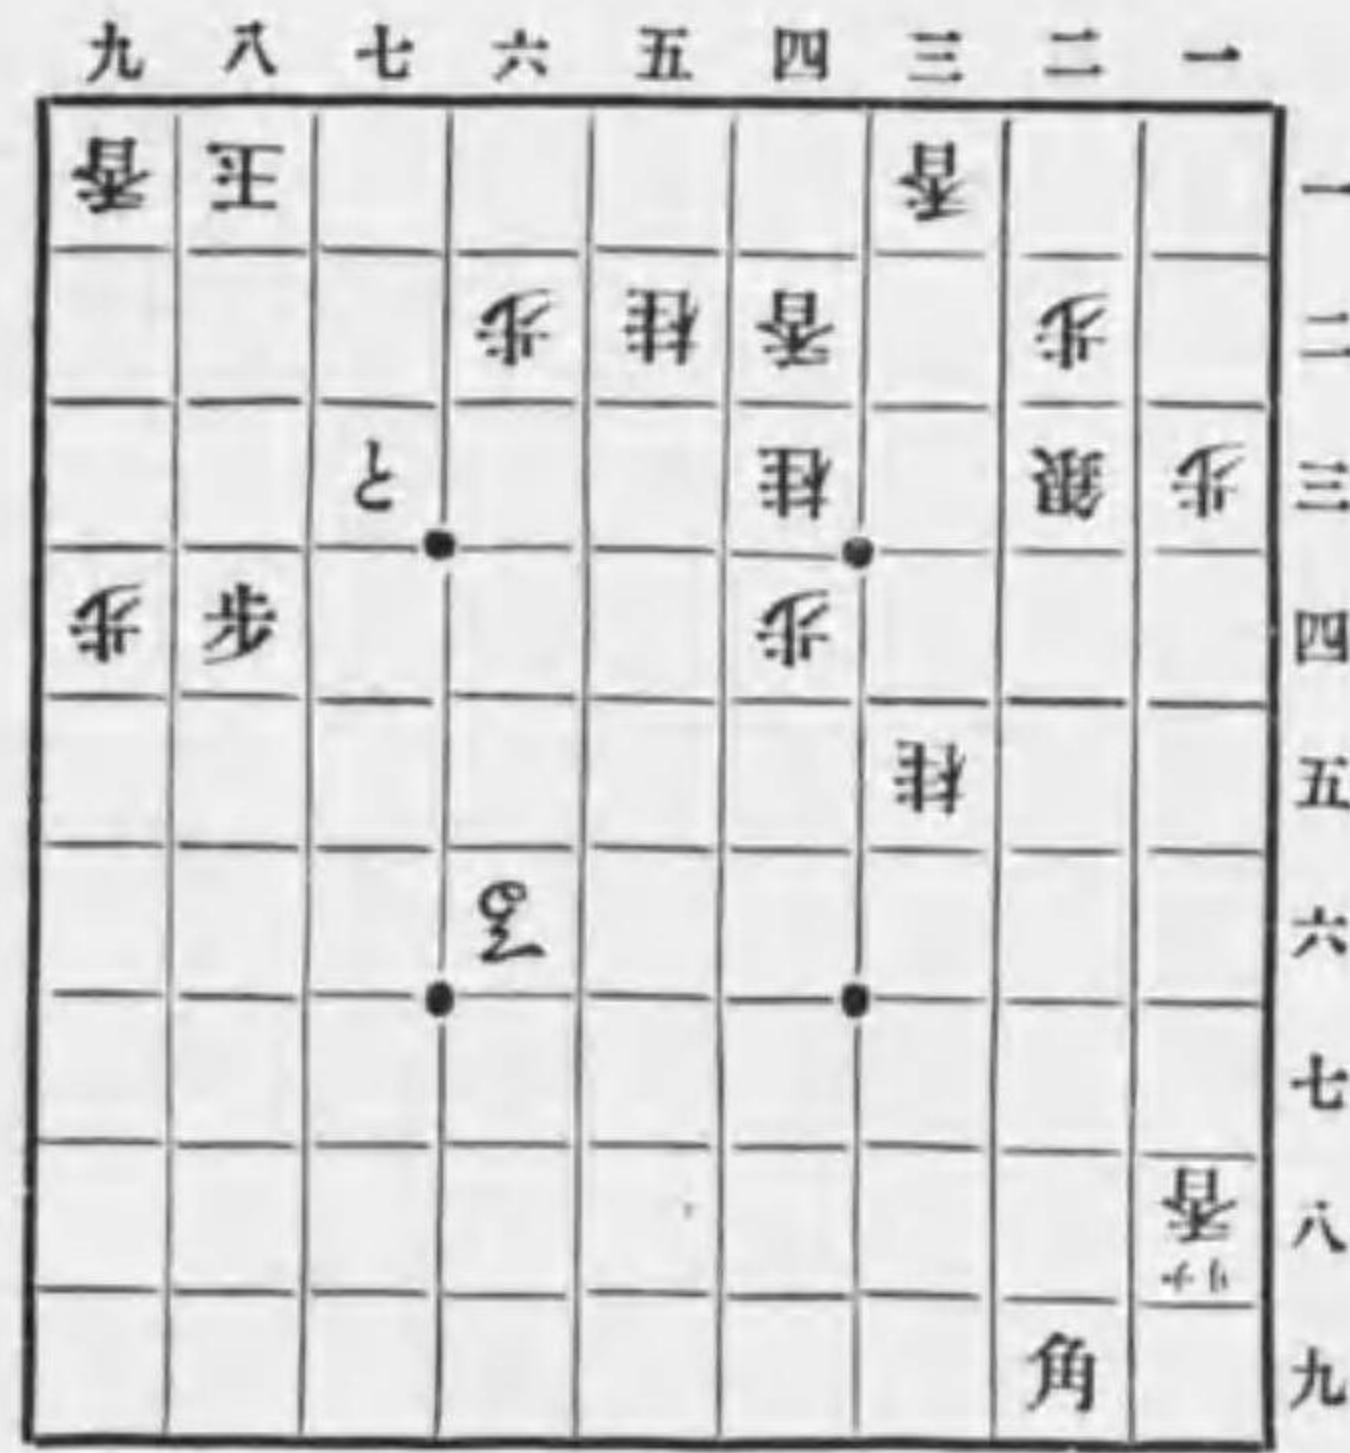 九 八 七 六 五 四 三 二 一
香 王 香 一
歩 桂 香 歩 二
と 桂 銀 歩 三
歩 歩 歩 四
桂 五
六
七
香 八
角 九